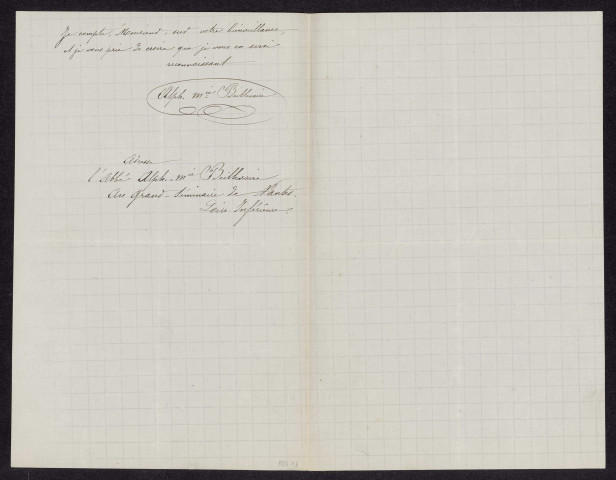 Je compte, Monsieur, sur votre bienveillance,
et je vous prie de croire que je vous en serai
reconnaissant
Alph. Mie
Adresse
l'Abbé Alph. Mie
Au grand-Séminaire de Nantes.
Loire Inférieure